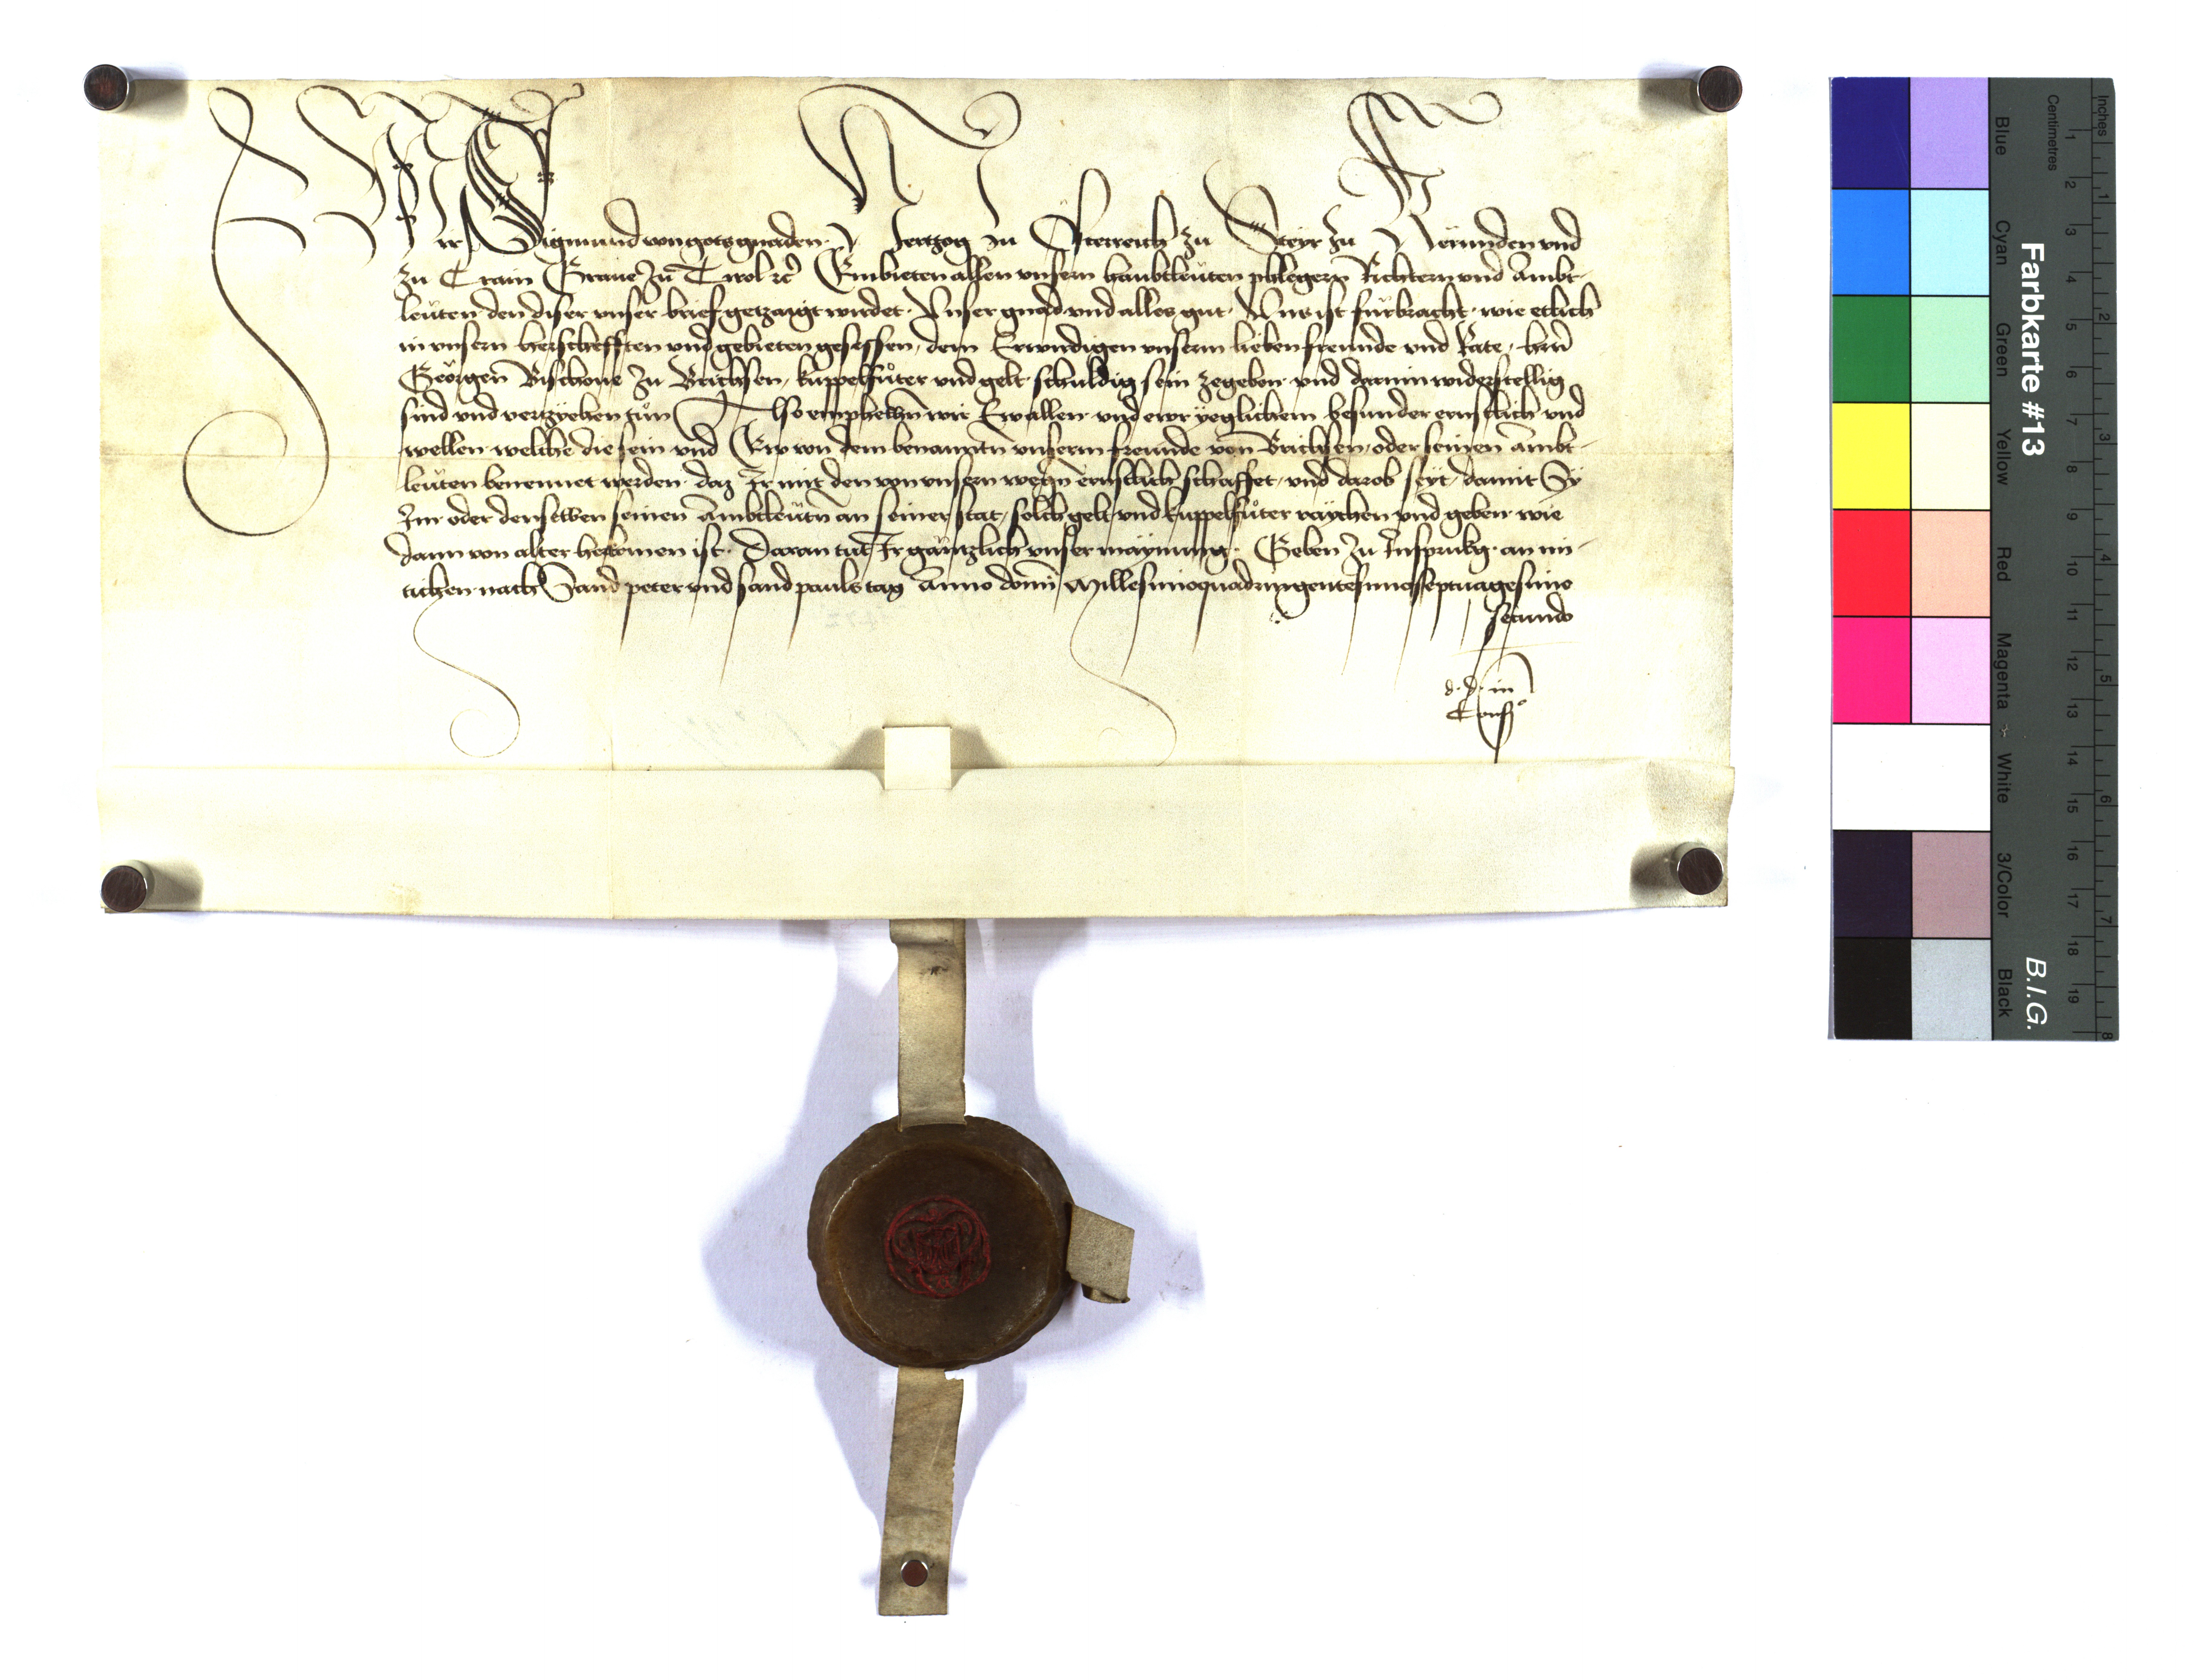 Wir Sigmund von gots gnaden Hertzog zu Österreich zu Steyr zu Kernnden vnd
zu Crain Graue zu Tirol etc Embieten allen vnsern haubtleuten phlegern Richtern vnd Ambt-
leuten den diser vnser brief getzaigt wirdet. Vnser gnad vnd alles gut. Vns ist fürbracht. wie etlich
in vnsern herschefften vnd gebieten gesessen, dem Erwirdigen vnserm lieben freunde vnd Rate, hern
Geörgen Bischoue zu Brichsen, kuppelfuter vnd gelt schuldig sein zegeben. vnd darinn widerstellig
sind vnd vertzyehen tun Also emphelhen wir Ew allen vnd ewr yeglichem besunder ernstlich vnd
wellen. welche die sein vnd Ew von dem benanntn vnserm freunde von Brichsen, oder seinen Ambt-
leuten benennet werden. daz Ir mit den von vnsern wegn ernstlich schaffet, vnd darob seyt, damit Sy
Im oder denselben seinen Ambtleutn an seiner stat, solch gelt vnd kuppelfuter raychen vnd geben. wie
dann von alter herkomen ist. Daran tut Ir gäntzlich vnser maynung. Geben zu Insprukg. an mi-
tichen nach Sand peter vnd sand pauls tag Anno domini Millesimoquadringentesimoseptuagesimo
secundo
d. d. in
Consilio
Farbkarte #13
B.I.G.
Blue
Cyan
Green
Yellow
Red
Magenta
White
3/Color
Black
Centimetres
1 2 3 4 5 6 7 8 9 10 11 12 13 14 15 16 17 18 19
Inches
1 2 3 4 5 6 7 8